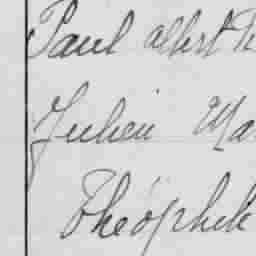 Paul albert
Julien Ma
Théophile